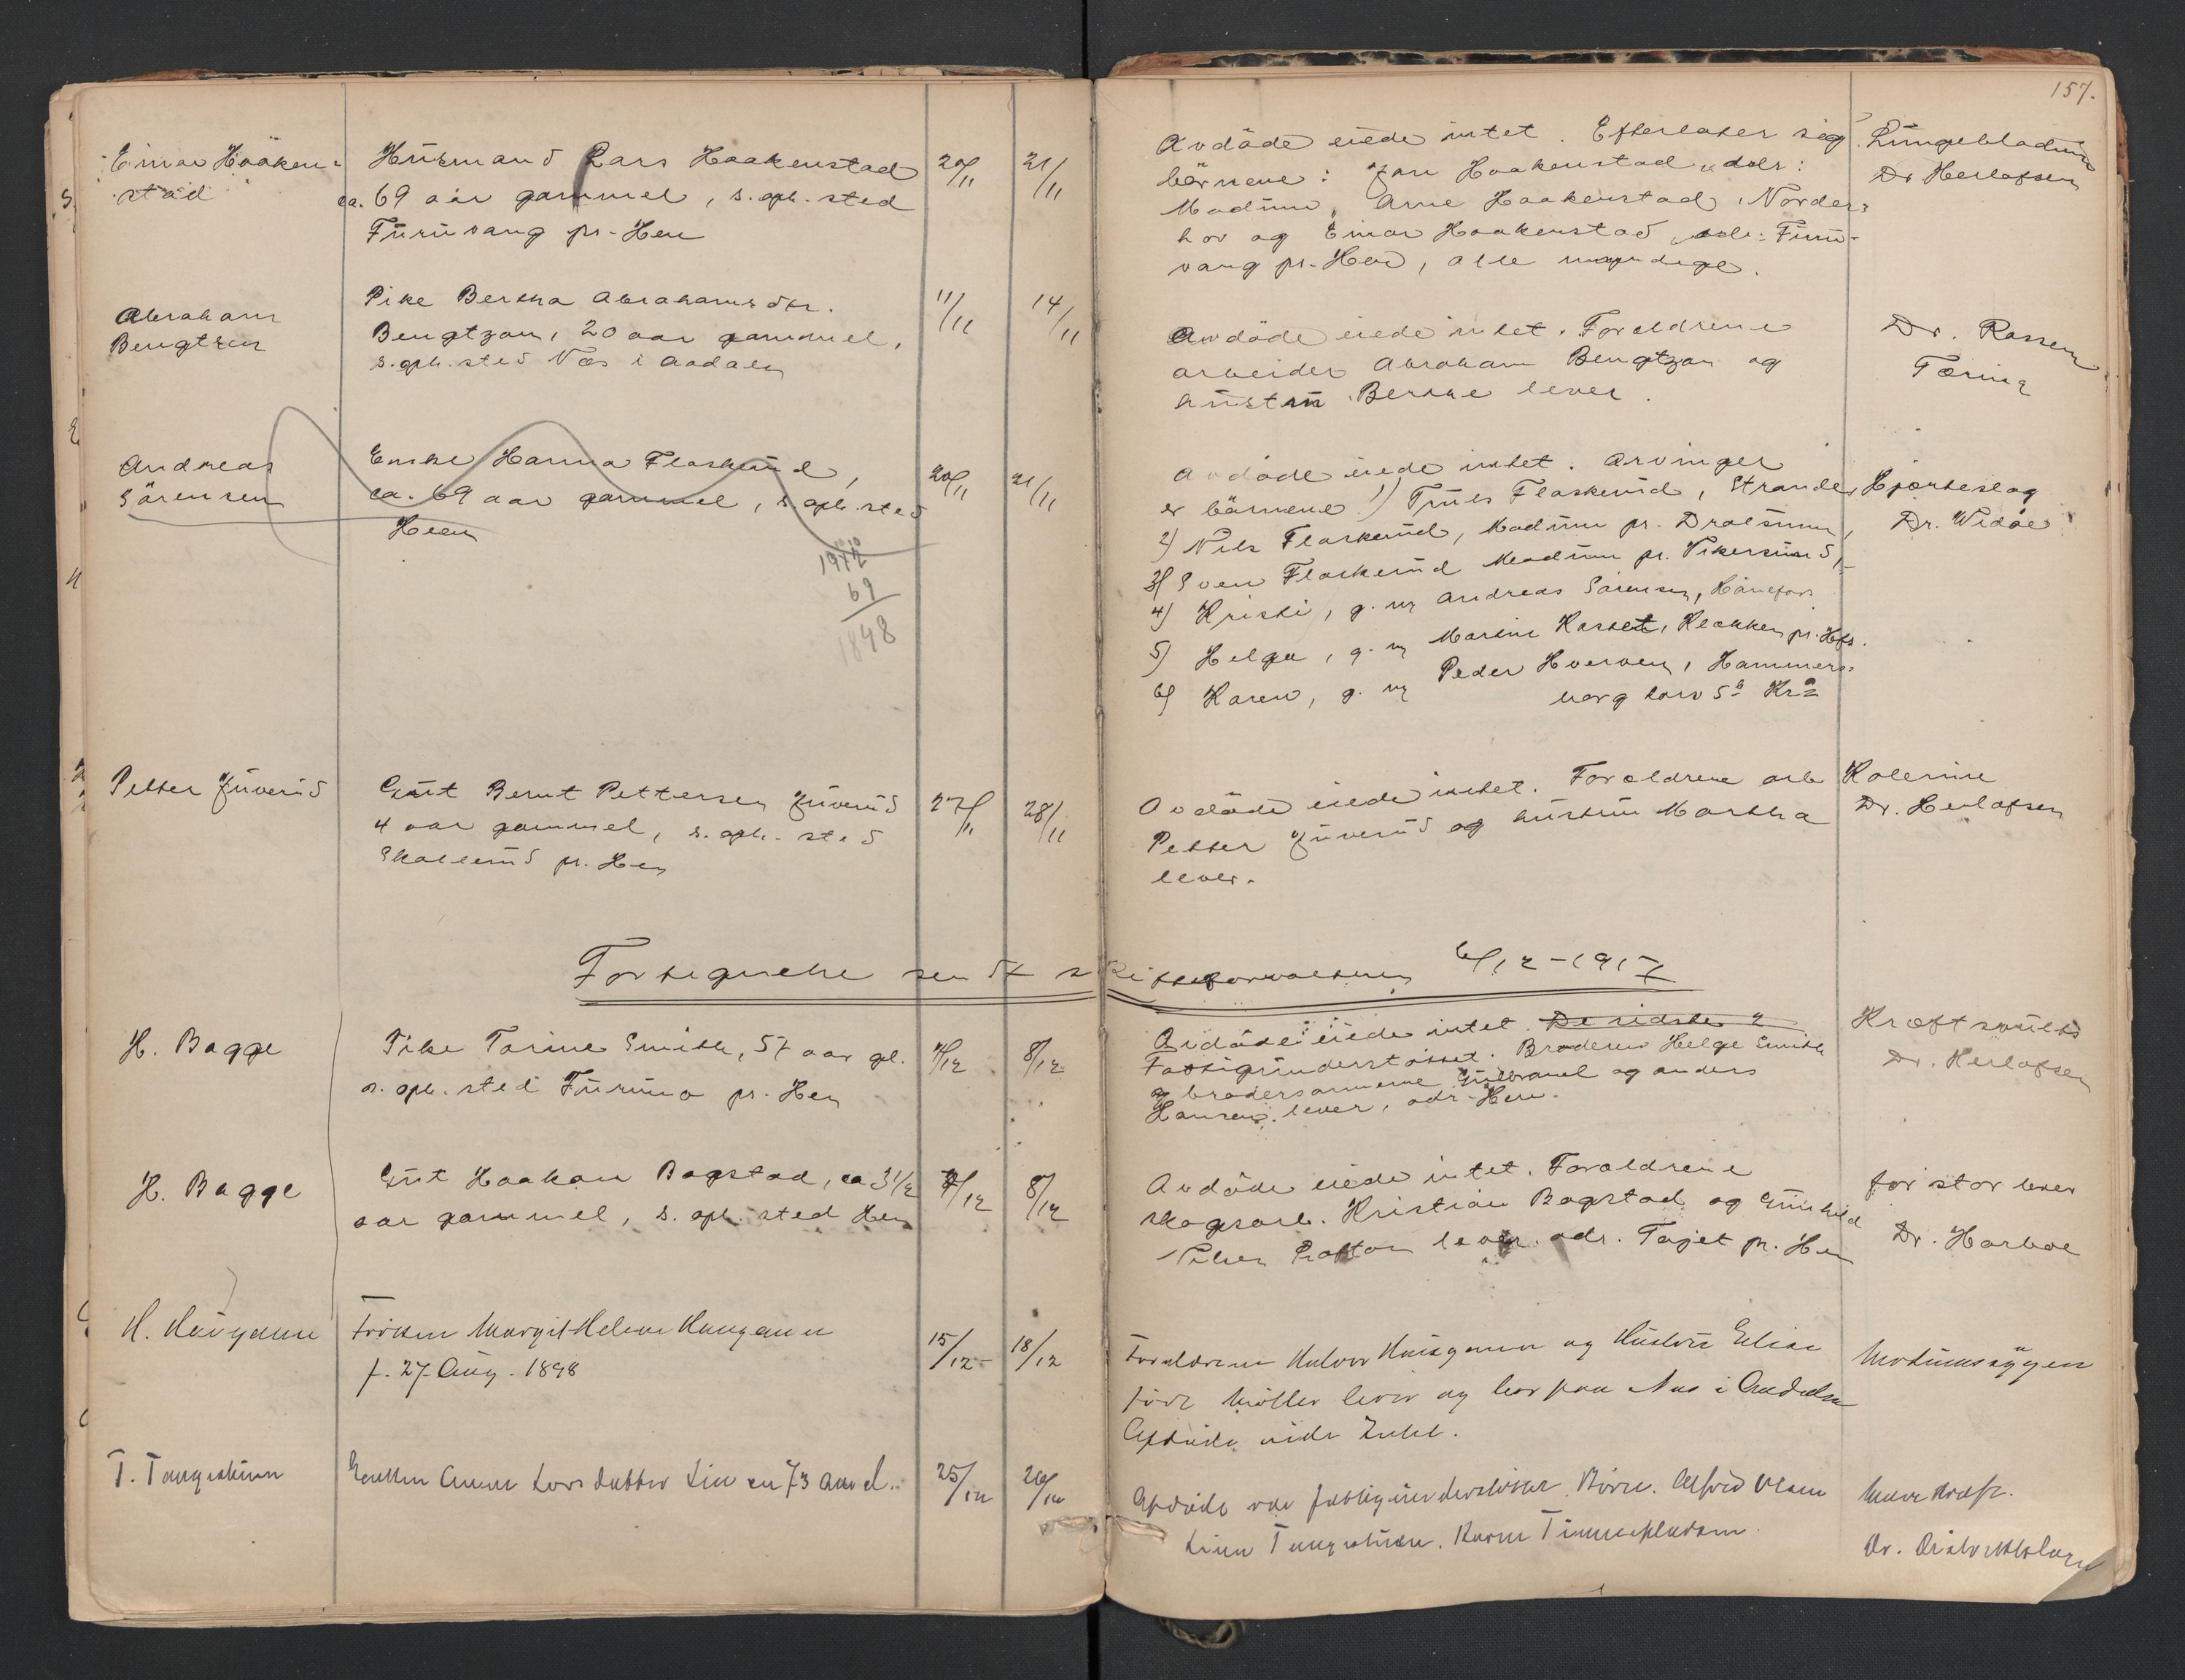 157.
Einar Haaken-
stad
Husmand Lars Haakenstad
ca. 69 aar gammel, s. oph. sted
Furuvang pr. Hen
20/11
21/11
Avdöde eiede intet. Efterlater sig
börnene: Jan Haakenstad, adr:
Modum, Arne Haakenstad, Norder-
hov og Einar Haakenstad, adr: Furu-
vang pr. Hen, alle myndige.
Lungebladning
Dr Herlofsen
Abraham
Bengtzen
Pike Bertha Abrahamsdtr.
Bengtzon, 20 aar gammel,
s. oph. sted Næs i Aadalen
11/11
14/11
Avdöde eiede intet. Forældrene
arbeider Abraham Bengtzon og
hustru Berthe lever.
Dr. Rossen
Tæring
Andreas
Sörensen
Enke Hanna Flaskerud,
ca. 69 aar gammel, s. oph. sted
Heen
20/11
21/11
69
1848
Avdöde eiede intet. Arvinger
er börnene 1) Truls Flaskerud, Stranden
2) Nils Flaskerud, Modum pr. Drolsum,
3) Sven Flaskerud Modum pr. Vikersund,
4) Kristi, g. m Andreas Sörensen, Hönefos
5) Helga, g. m Martin Kastet, Klækken pr. Hfs.
6) Karen, g. m Peder Hverven, Hammers-
borg torv 5b Kra
Hjerteslag
Dr. Widöe
Petter Juverud
Gut Bernt Pettersen Juverud
4 aar gammel, s. oph. sted
Skollerud pr. Hen
27/11
28/11
Avdöde eiede intet. Forældrene arb
Petter Juverud og hustru Martha
lever.
Kolerine
Dr. Herlofsen
Fortegnelse sendt skifteforvalteren 6/12-1917
H. Bagge
Pike Torine Smith, 57 aar gl.
s. oph. sted Furumo pr. Hen
4/12
8/12
Avdöde eiede intet. De sidste 2
Fattigunderstöttet. Broderen Helge Smith
og brodersönnerne Gulbrand og Anders
Hansen lever, adr. Hen.
Kræftsvulst
Dr. Herlofsen
H. Bagge
Gut Haakon Bagstad, ca 3 1/2
aar gammel, s. oph. sted Hen
7/12
8/12
Avdöde eiede intet. Forældrene
skogsarb. Kristian Bagstad og Gunhild
lever. adr. Tajet pr. Hen
for stor lever
Dr. Harboe
H. Haugann
Fröken Margit Helene Haugann
f. 27 Aug. 1898
15/12
18/12
Forældrene Halvor Haugann og Hustru Elise
född Möller lever og bor paa Næs i Aadalen
Afdöde eide Intet.
T. Tangestuen
Enken Anne Larsdatter Lien 73 Aar gl.
25/12
26/12
Afdöde var fattigunderstöttet. Börn. Alfred Olsen
Lien Tangestuen. Karen
Mave kræft.
Dr.